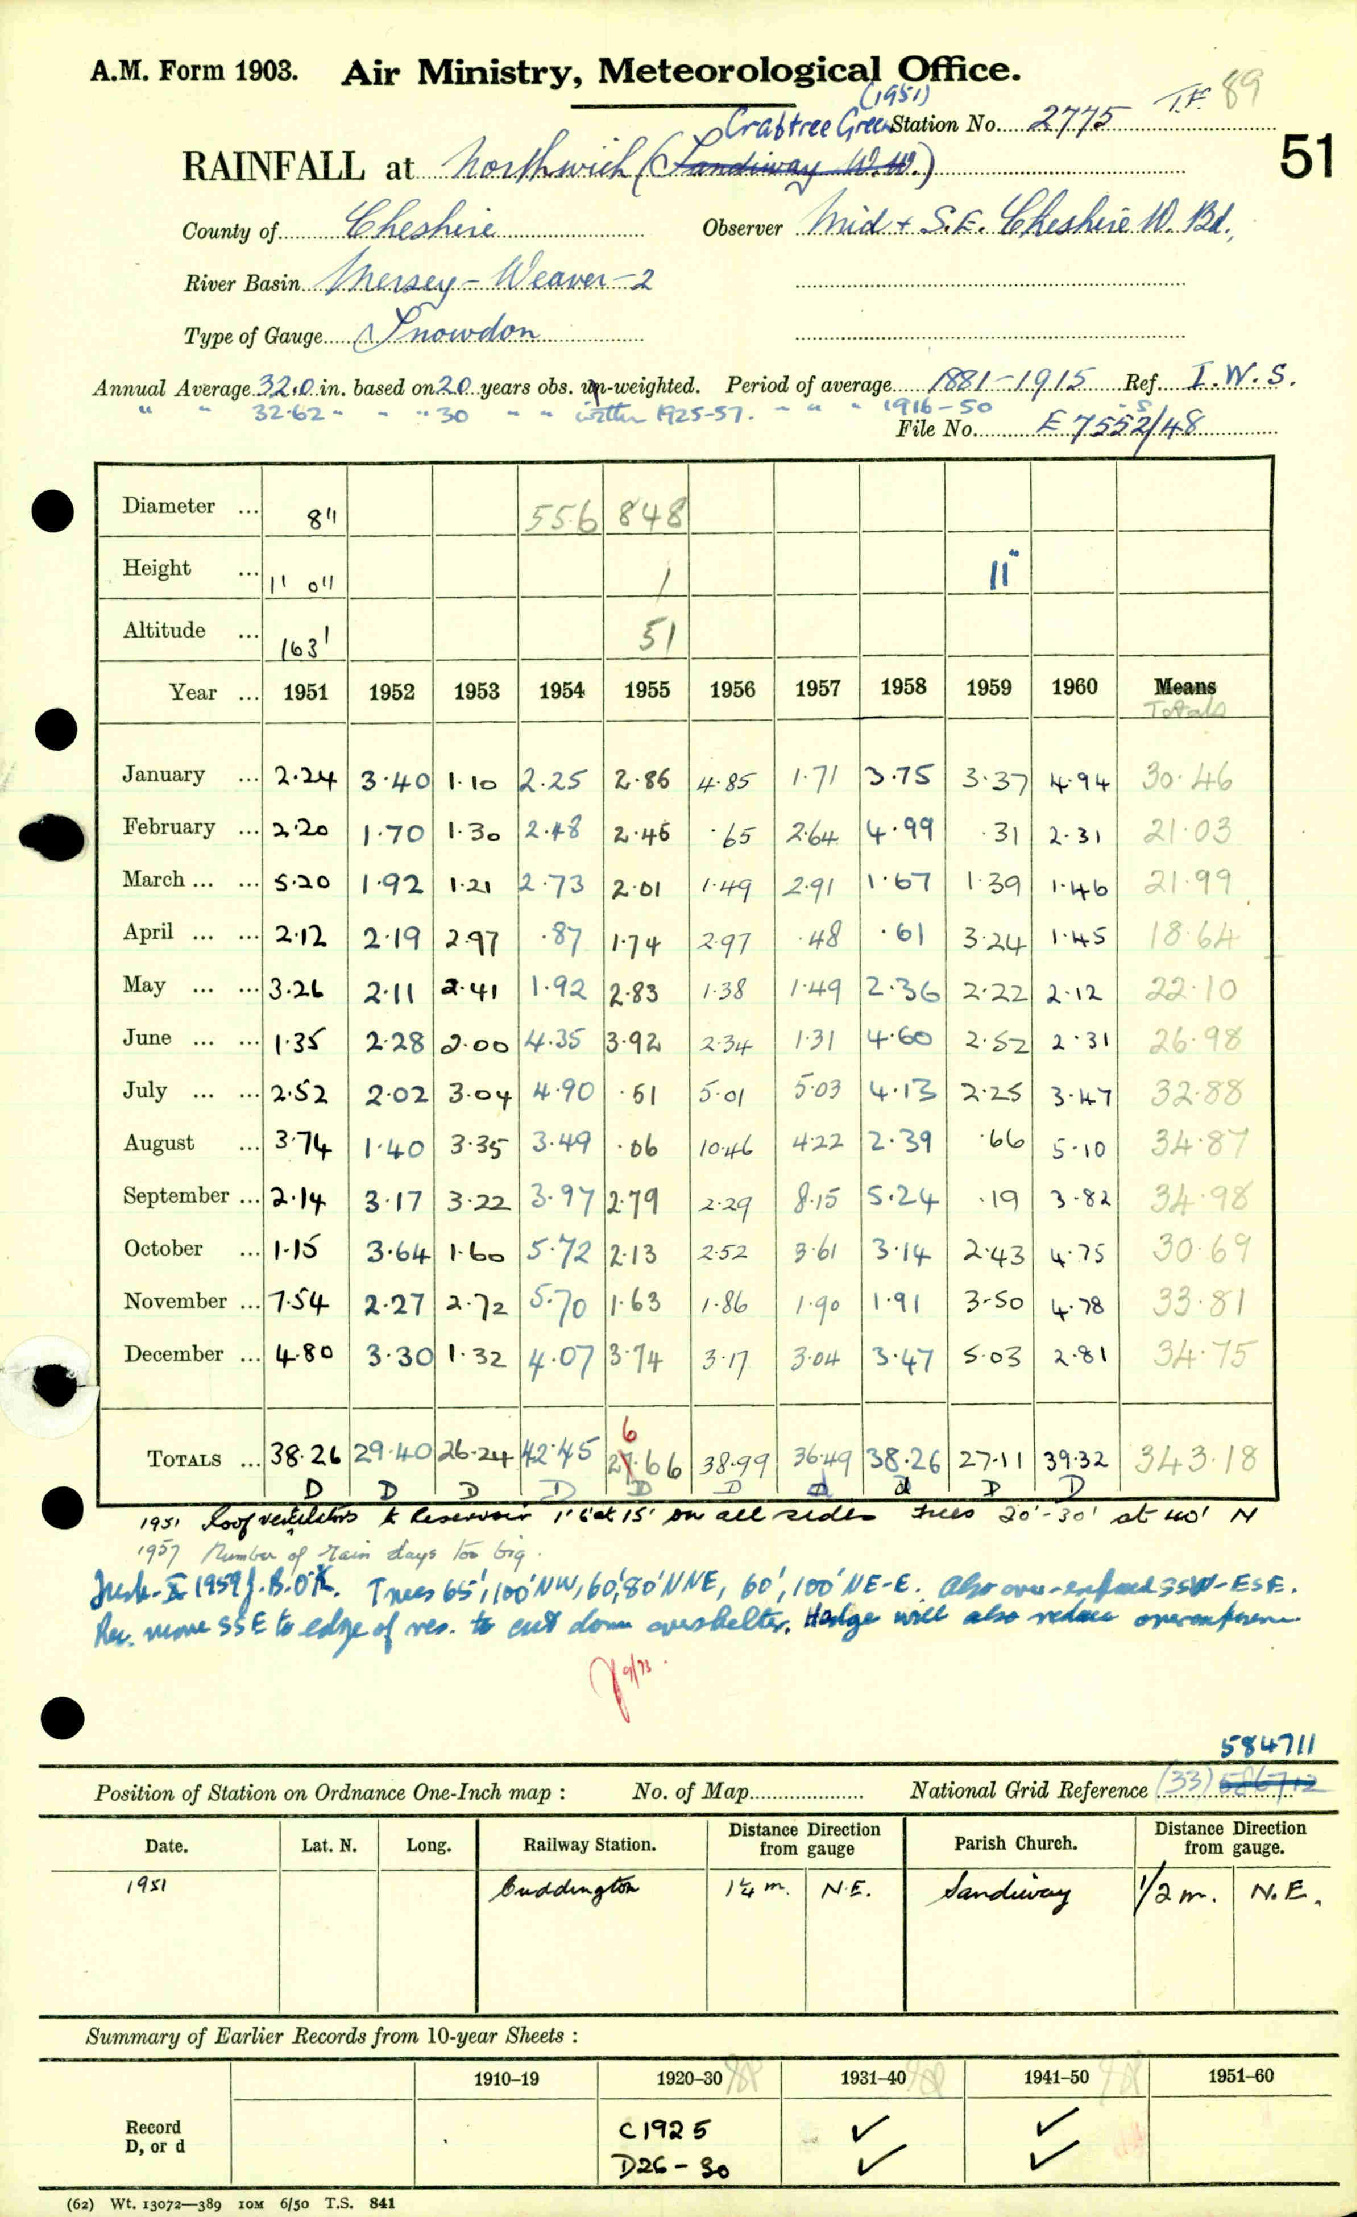 A.M. Form 1903. Air Ministry, Meteorological Office.
(1951) T.F. 89
Crabtree Green Station No. 2775
51
RAINFALL at Northwich (Sandiway W.W.)
County of Cheshire Observer Mid + S.E. Cheshire W. Bd.,
River Basin Mersey - Weaver - 2
Type of Gauge Snowdon
Annual Average 32.0 in. based on 20 years obs. un-weighted. Period of average 1881-1915 Ref. I.W.S.
" " 32.62 " " " 30 " " within 1925-57. " " " 1916-50
File No. E 7552/48
Diameter ... 8" 556 848
Height ... 1' 0" 1 11"
Altitude ... 163' 51
Year ... 1951 1952 1953 1954 1955 1956 1957 1958 1959 1960 Means
Totals
January ... 2.24 3.40 1.10 2.25 2.86 4.85 1.71 3.75 3.37 4.94 30.46
February ... 2.20 1.70 1.30 2.48 2.45 .65 2.64 4.99 .31 2.31 21.03
March ... ... 5.20 1.92 1.21 2.73 2.01 1.49 2.91 1.67 1.39 1.46 21.99
April ... ... 2.12 2.19 2.97 .87 1.74 2.97 .48 .61 3.24 1.45 18.64
May ... ... 3.26 2.11 2.41 1.92 2.83 1.38 1.49 2.36 2.22 2.12 22.10
June ... ... 1.35 2.28 2.00 4.35 3.92 2.34 1.31 4.60 2.52 2.31 26.98
July ... ... 2.52 2.02 3.04 4.90 .51 5.01 5.03 4.13 2.25 3.47 32.88
August ... 3.74 1.40 3.35 3.49 .06 10.46 4.22 2.39 .66 5.10 34.87
September ... 2.14 3.17 3.22 3.97 2.79 2.29 8.15 5.24 .19 3.82 34.98
October ... 1.15 3.64 1.60 5.72 2.13 2.52 3.61 3.14 2.43 4.75 30.69
November ... 7.54 2.27 2.72 5.70 1.63 1.86 1.90 1.91 3.50 4.78 33.81
December ... 4.80 3.30 1.32 4.07 3.74 3.17 3.04 3.47 5.03 2.81 34.75
6
TOTALS ... 38.26 29.40 26.24 42.45 27.66 38.99 36.49 38.26 27.11 39.32 343.18
D D D D D D d d D D
1951 Roof ventilators to Reservoir 1'6" at 15' on all sides Trees 20'-30' at 40' N
1957 Number of rain days too big.
X 1959 J.B. O.K. Trees 65', 100' NW, 60', 80' NNE, 60', 100' NE-E. Also over-exposed SSW-ESE.
Rec. move SSE to edge of res. to cut down overshelter. Hedge will also reduce
9/73.
584711
Position of Station on Ordnance One-Inch map : No. of Map National Grid Reference (33) 586712
Date. Lat. N. Long. Railway Station. Distance from gauge Direction Parish Church. Distance from gauge. Direction
1951 Cuddington 1¼ m. N.E. Sandiway 1/2 m. N.E.
Summary of Earlier Records from 10-year Sheets :
1910-19 1920-30 1931-40 1941-50 1951-60
Record C 1925 ✓ ✓
D, or d D26 - 30 ✓ ✓
(62) Wt. 13072—389 10M 6/50 T.S. 841